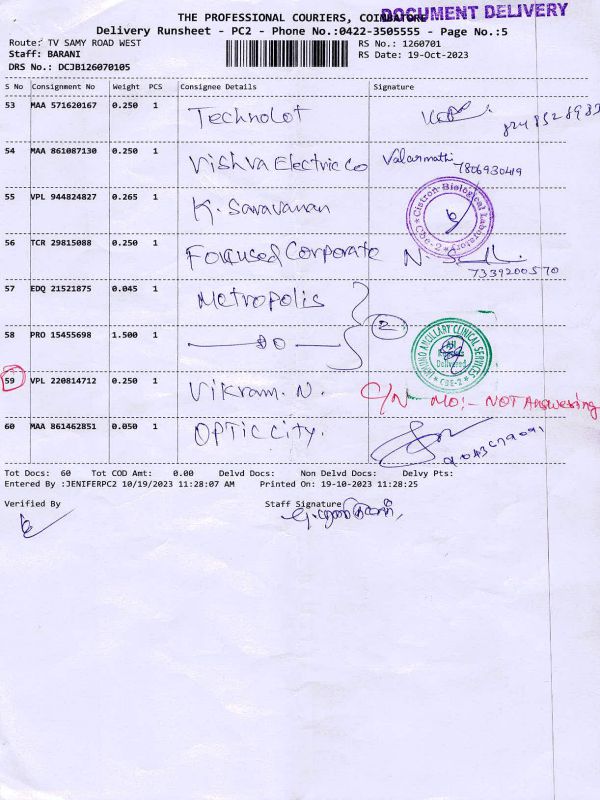 THE PROFESSIONAL COURIERS, COIMBATORE
DOCUMENT DELIVERY
Delivery Runsheet - PC2 - Phone No.:0422-3505555 - Page No.:5
Route: TV SAMY ROAD WEST
RS No.: 1260701
Staff: BARANI
RS Date: 19-Oct-2023
DRS No.: DCJB126070105
S No Consignment No Weight PCS Consignee Details Signature
53 MAA 571620167 0.250 1 Technolot
54 MAA 861087130 0.250 1 Vishva Electric Co Valarmathi
7806930419
55 VPL 944824827 0.265 1 K. Saravanan
Cistron Biological Laboratory
Cbe-2
56 TCR 29815088 0.250 1 Forcused Corporate N.
7339200570
57 EDQ 21521875 0.045 1 Metropolis
58 PRO 15455698 1.500 1 DO 2
ANCILLARY CLINICAL SERVICES
Delivered
CBE-2
59 VPL 220814712 0.250 1 Vikram. N. C/N - MO:- NOT Answering
60 MAA 861462851 0.050 1 OPTIC CITY.
Tot Docs: 60 Tot COD Amt: 0.00 Delvd Docs: Non Delvd Docs: Delvy Pts:
Entered By :JENIFERPC2 10/19/2023 11:28:07 AM Printed On: 19-10-2023 11:28:25
Verified By Staff Signature